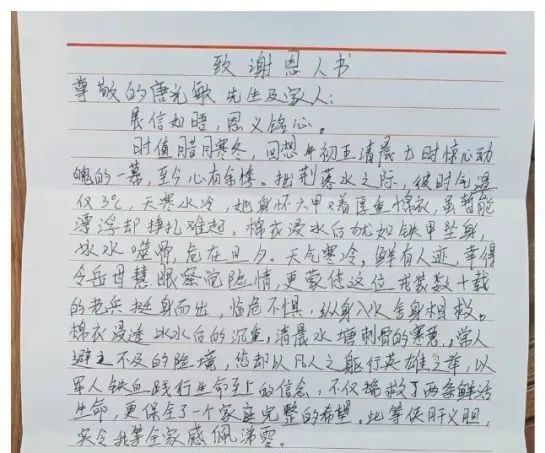 致谢恩人书
尊敬的唐光敏先生及家人：
展信如晤，恩义铭心。
时值腊月寒冬，回想年初五清晨七时惊心动
魄的一幕，至今心有余悸。拙荆落水之际，彼时气温
仅3℃，天寒水冷，她身怀六甲又着厚重棉衣，虽暂能
漂浮却挣扎难起，棉衣浸水后犹如铁甲坠身，
冰水噬骨，危在旦夕。天气寒冷，鲜有人迹，幸得
令岳母慧眼察觉险情，更蒙您这位戎装数十载
的老兵挺身而出，临危不惧，纵身入水舍身相救。
棉衣浸透冰水后的沉重，清晨水塘刺骨的寒意，常人
避之不及的险境，您却以凡人之躯行英雄之举，以
军人铁血践行生命至上的信念，不仅拯救了两条鲜活
生命，更保全了一个家庭完整的希望。此等侠肝义胆，
实令我等全家感佩涕零。